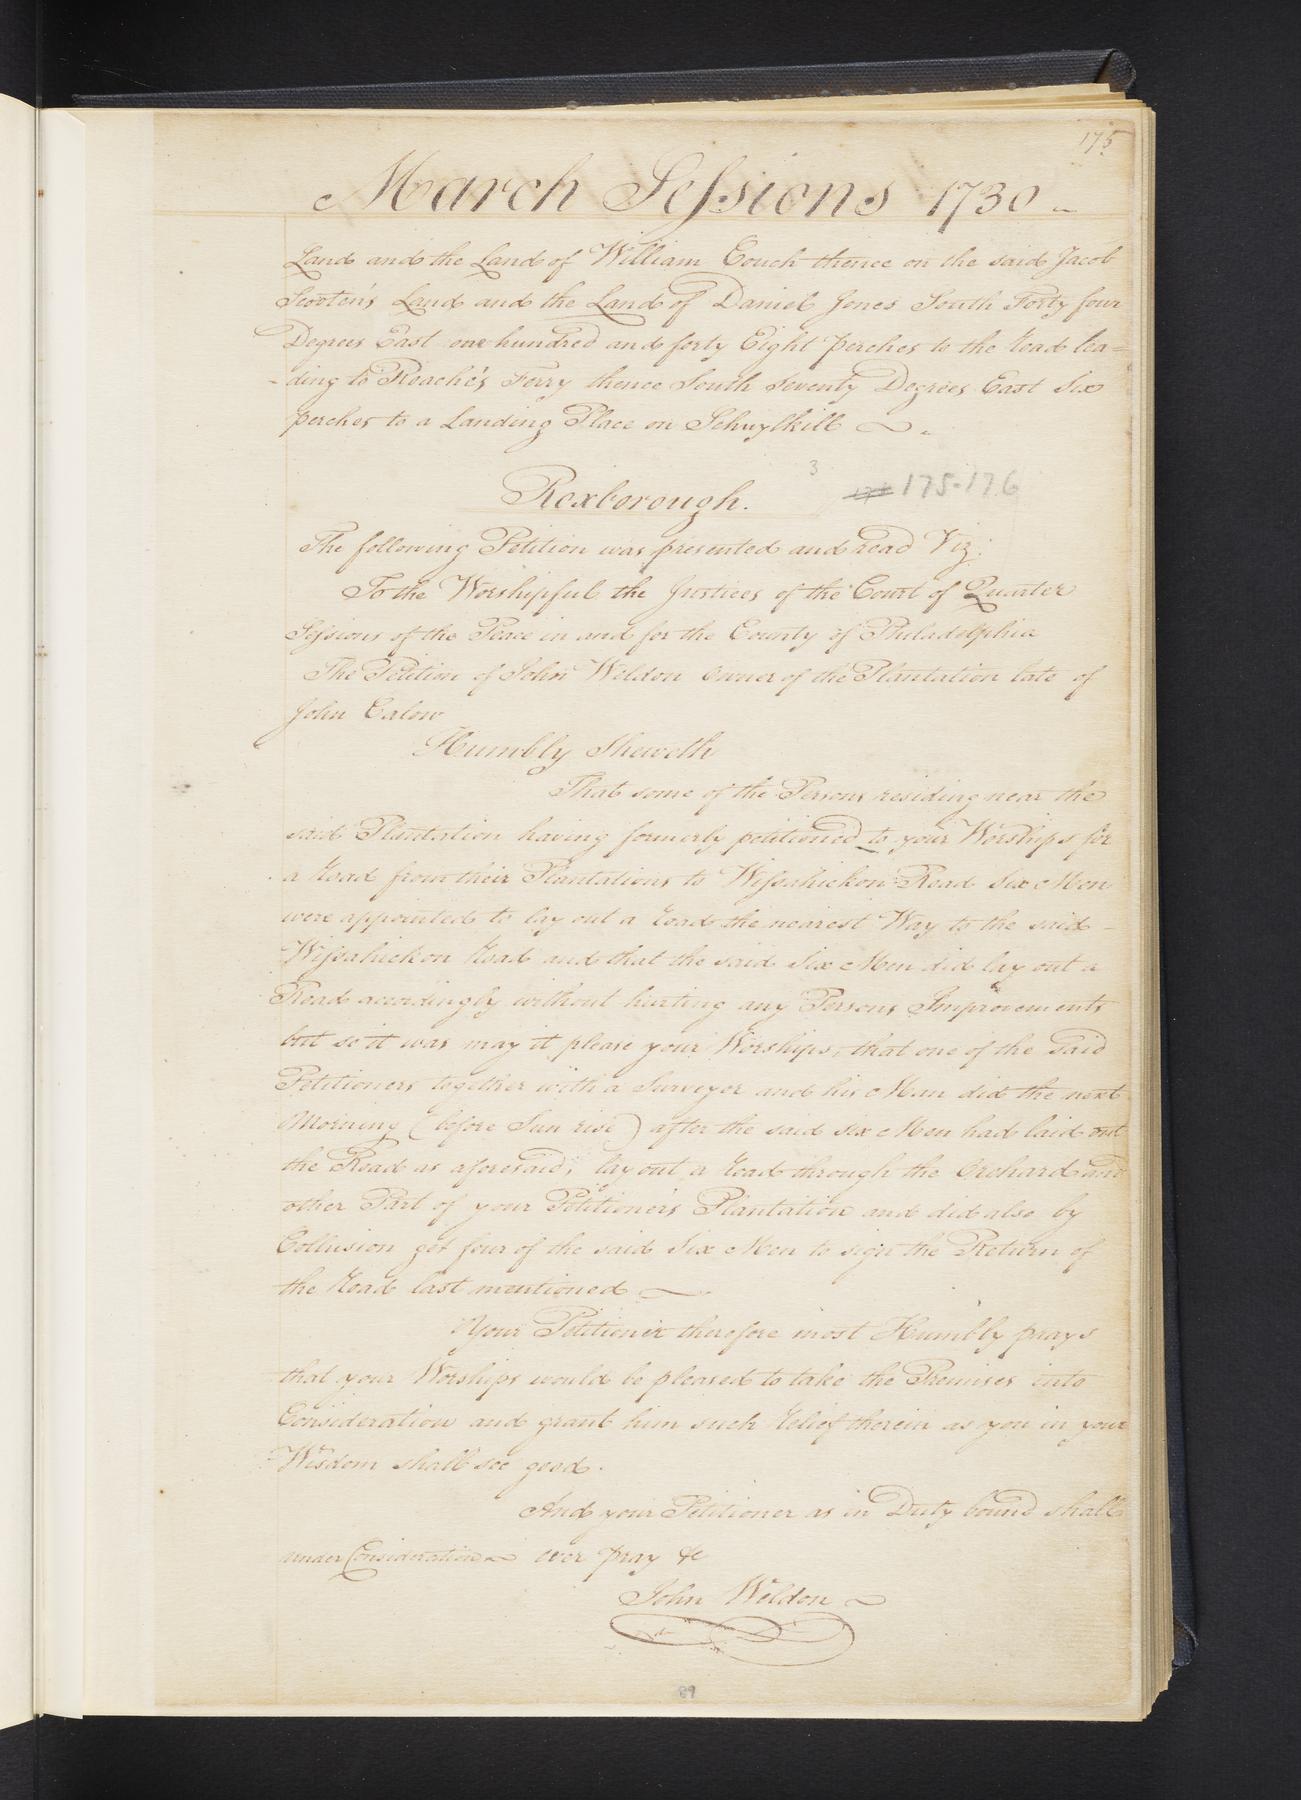 175
March Sessions 1730
Land and the Land of William Couch thence on the said Jacob
Scooten's Land and the Land of Daniel Jones South Forty four
Degrees East one hundred and forty Eight perches to the Road lea=
-ding to Roache's Ferry thence South Seventy Degrees East Six
perches to a Landing Place on Schuylkill
3
175-176
Roxborough.
The following Petition was presented and read Viz:
To the Worshipful the Justices of the Court of Quarter
Sessions of the Peace in and for the County of Philadelphia
The Petition of John Weldon Owner of the Plantation late of
John Calow
Humbly Sheweth
That some of the Persons residing near the
said Plantation having formerly petitioned to your Worships for
a Road from their Plantations to Wissahickon Road Six Men
were appointed to lay out a Road the nearest Way to the said -
Wissahickon Road and that the said Six Men did lay out a
Road accordingly without hurting any Persons Improvements
but so it was may it please your Worships, that one of the said
Petitioners together with a Surveyor and his Man did the next
Morning (before Sun rise) after the said six Men had laid out
the Road as aforesaid, lay out a Road through the Orchard and
other Part of your Petitioner's Plantation and did also by
Collusion get four of the said Six Men to sign the Return of
the Road last mentioned
Your Petitioner therefore most Humbly prays
that your Worships would be pleased to take the Premises into
Consideration and grant him such Relief therein as you in your
Wisdom shall see good.
And your Petitioner as in Duty bound shall
under Consideration ever pray &c
John Weldon
89